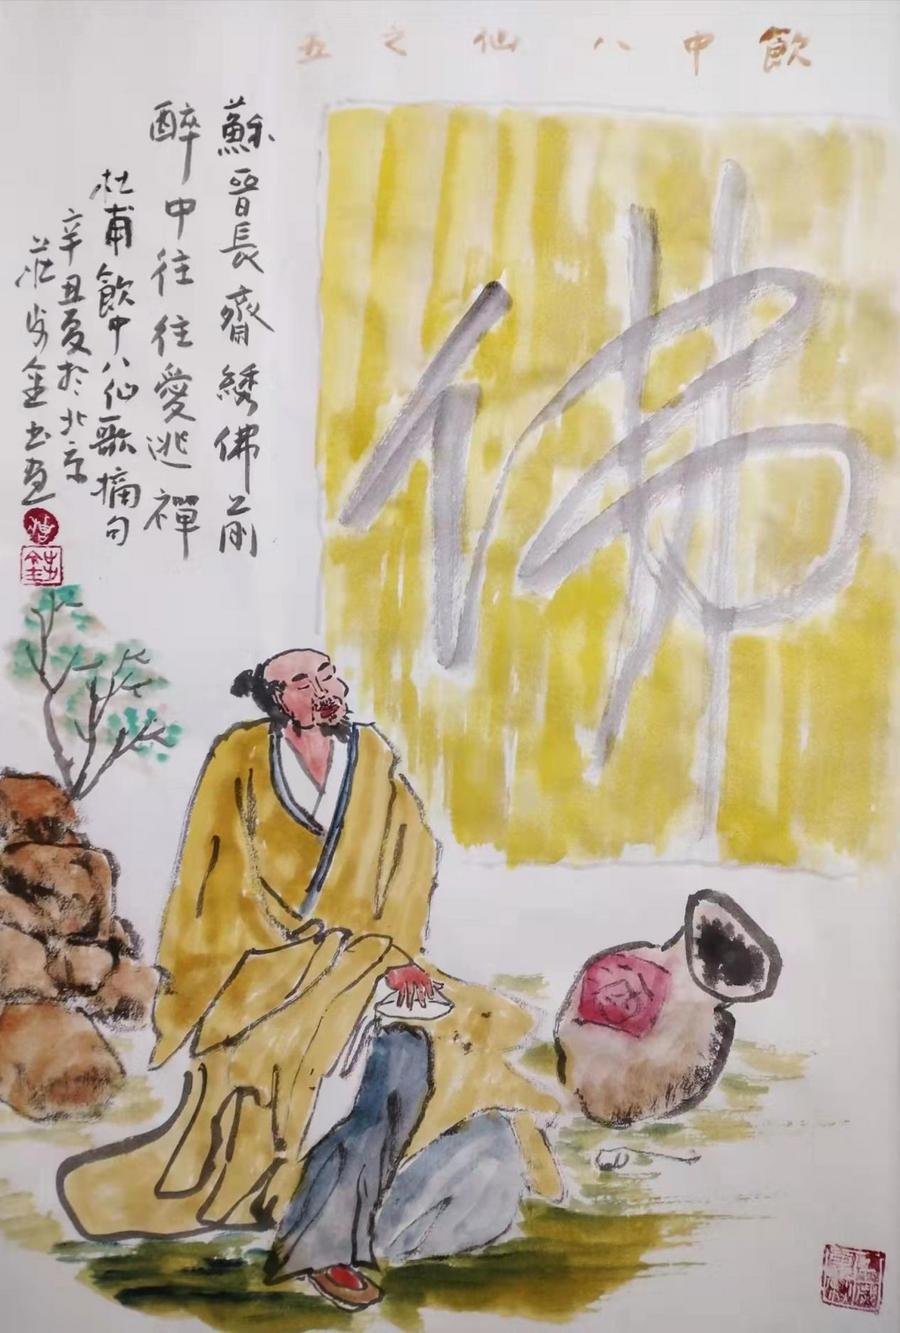 飲中八仙之五
佛
蘇晉長齋綉佛前
醉中往往愛逃禪
杜甫飲中八仙歌摘句
辛丑夏於北京
莊步金书画